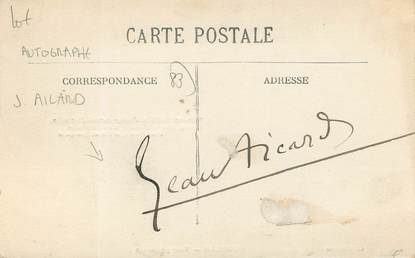 Lot
CARTE POSTALE
AUTOGRAPHE
CORRESPONDANCE
83
ADRESSE
J AICARD
Jean Aicard